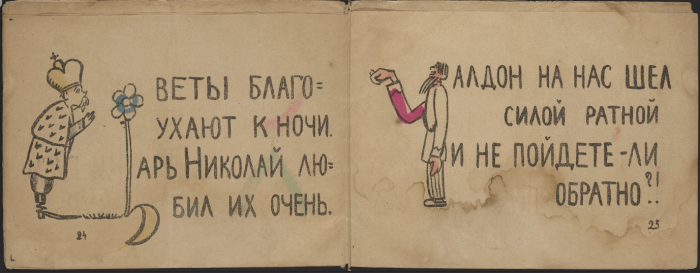 ВЕТЫ БЛАГО=
УХАЮТ К НОЧИ.
АРЬ НИКОЛАЙ ЛЮ=
БИЛ ИХ ОЧЕНЬ.
24
АЛДОН НА НАС ШЕЛ
СИЛОЙ РАТНОЙ
И НЕ ПОЙДЕТЕ-ЛИ
ОБРАТНО?!..
25